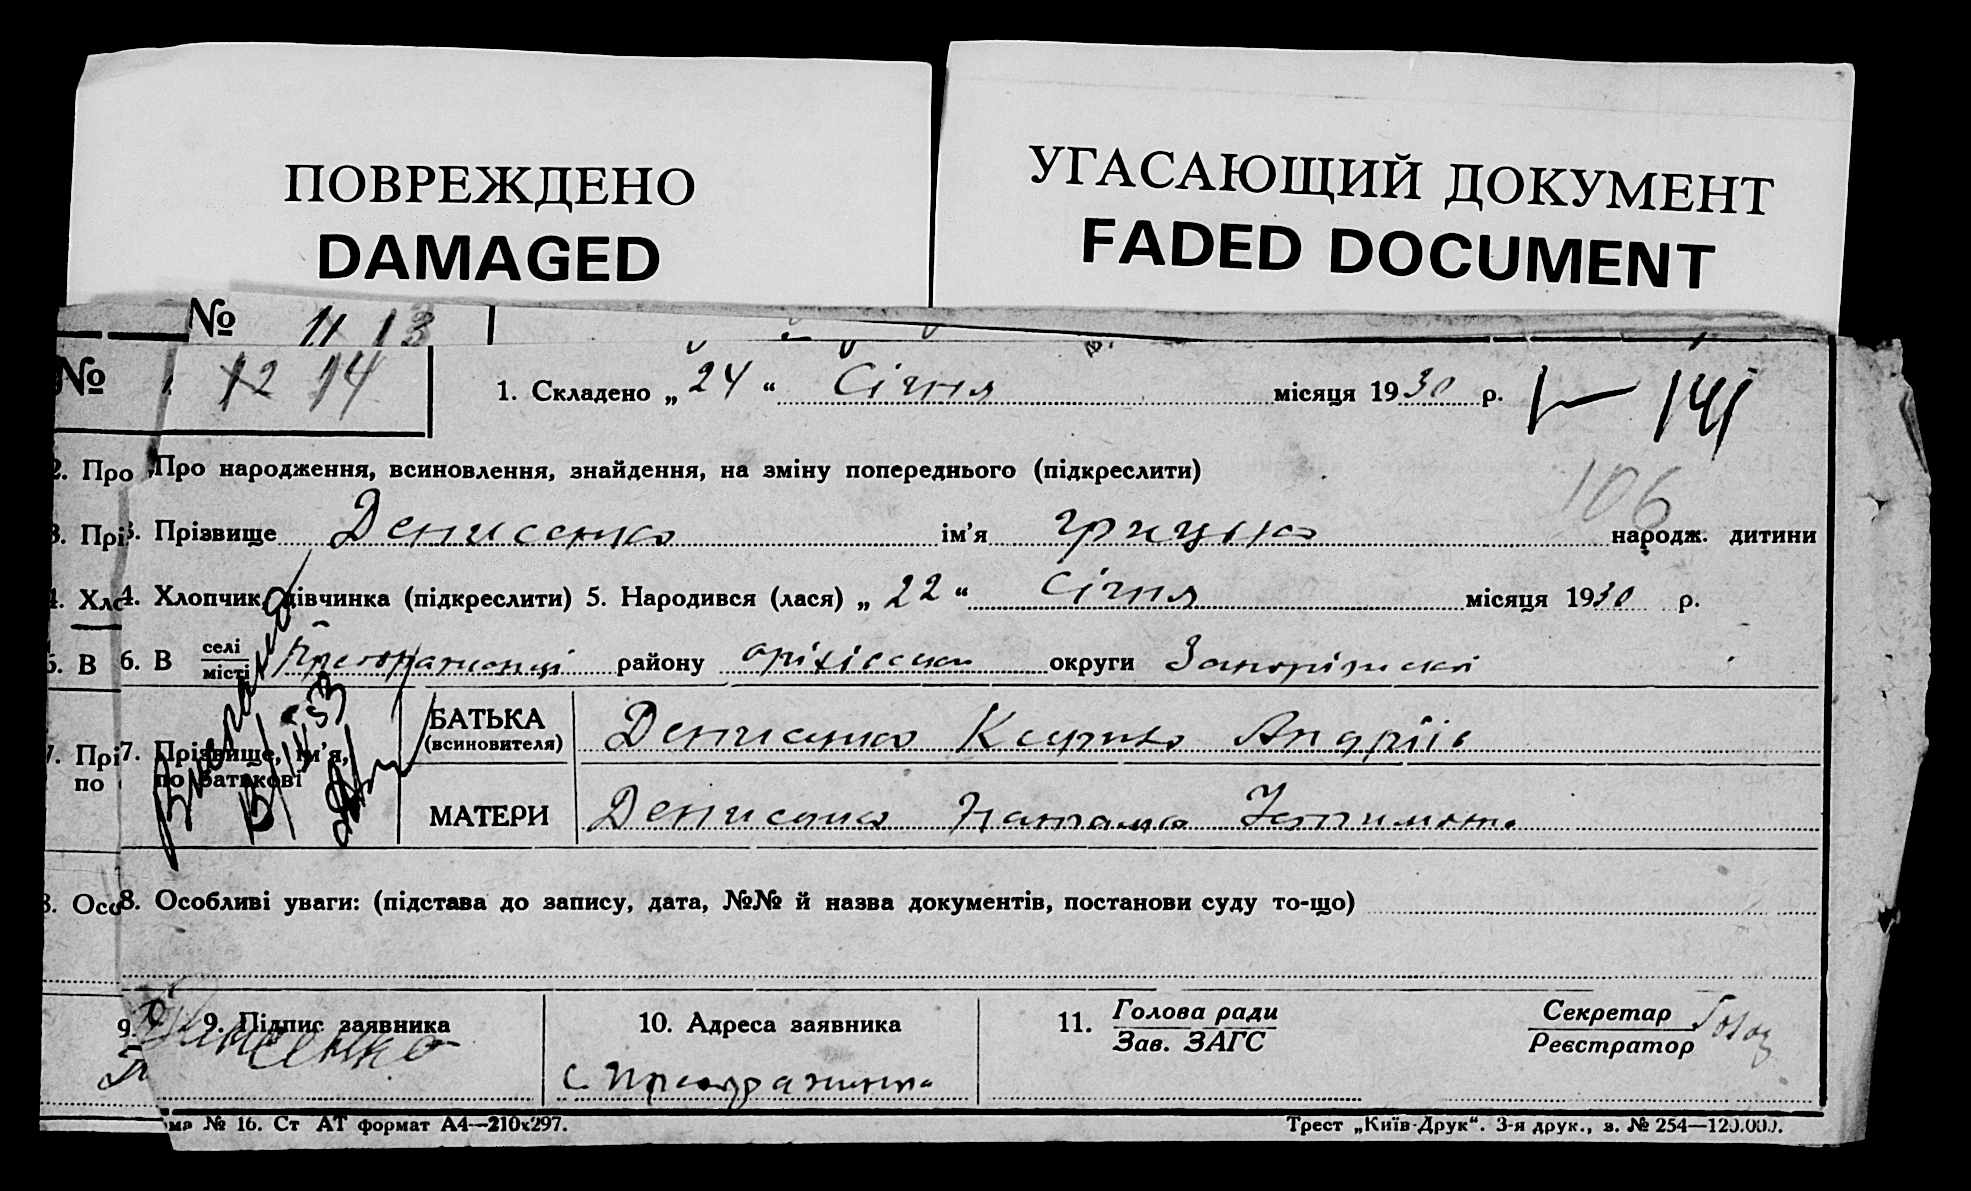 ПОВРЕЖДЕНО
DAMAGED
УГАСАЮЩИЙ ДОКУМЕНТ
FADED DOCUMENT
№ 11 13
№ 12 14
1. Складено „ 24 “ Січня місяця 1930 р.
141
2. Про Про народження, всиновлення, знайдення, на зміну попереднього (підкреслити)
106
3. Прі 3. Прізвище Денисенко ім’я Грицько народж. дитини
4. Хло 4. Хлопчик, дівчинка (підкреслити) 5. Народився (лася) „ 22 “ Січня місяця 1930 р.
6. В 6. В селі місті району оріхівськ округи Запорізькой
7. Прі 7. Прізвище, ім’я,
по по батькові
БАТЬКА
(всиновителя)
Денисенко Андріїв
МАТЕРИ Денисенко
8. Осо 8. Особливі уваги: (підстава до запису, дата, №№ й назва документів, постанови суду то-що)
9. 9. Підпис заявника
Денисенко
10. Адреса заявника
с.
11. Голова ради
Зав. ЗАГС
Секретар
Реєстратор
ма № 16. Ст АТ формат А4—210х297.
Трест „Київ-Друк“. 3-я друк., з. № 254—120.000.